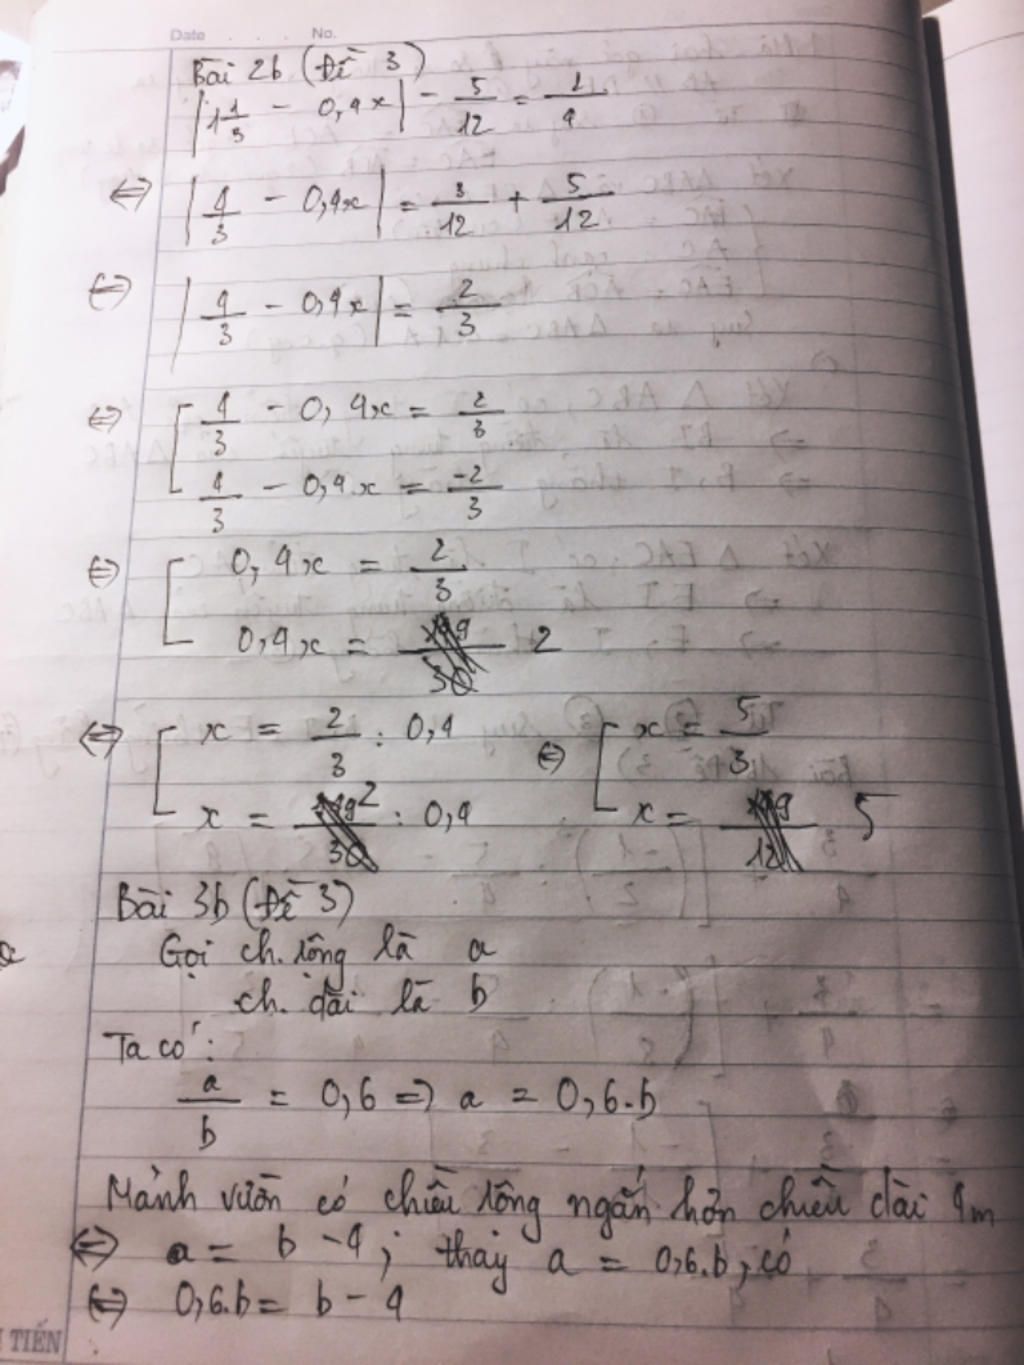 Date No.
Bài 2b (Đề 3)
|1 1/3 - 0,4x| - 5/12 = 1/4
⇔ |4/3 - 0,4x| = 3/12 + 5/12
⇔ |4/3 - 0,4x| = 2/3
⇔ [ 4/3 - 0,4x = 2/3
4/3 - 0,4x = -2/3
⇔ [ 0,4x = 2/3
0,4x = 2
⇔ [ x = 2/3 : 0,4 ⇔ [ x = 5/3
x = 2 : 0,4 x = 5
Bài 3b (Đề 3)
Gọi ch. rộng là a
ch. dài là b
Ta có:
a/b = 0,6 => a = 0,6.b
Mảnh vườn có chiều rộng ngắn hơn chiều dài 4m
⇔ a = b - 4; thay a = 0,6.b, có
⇔ 0,6.b = b - 4
TIẾN